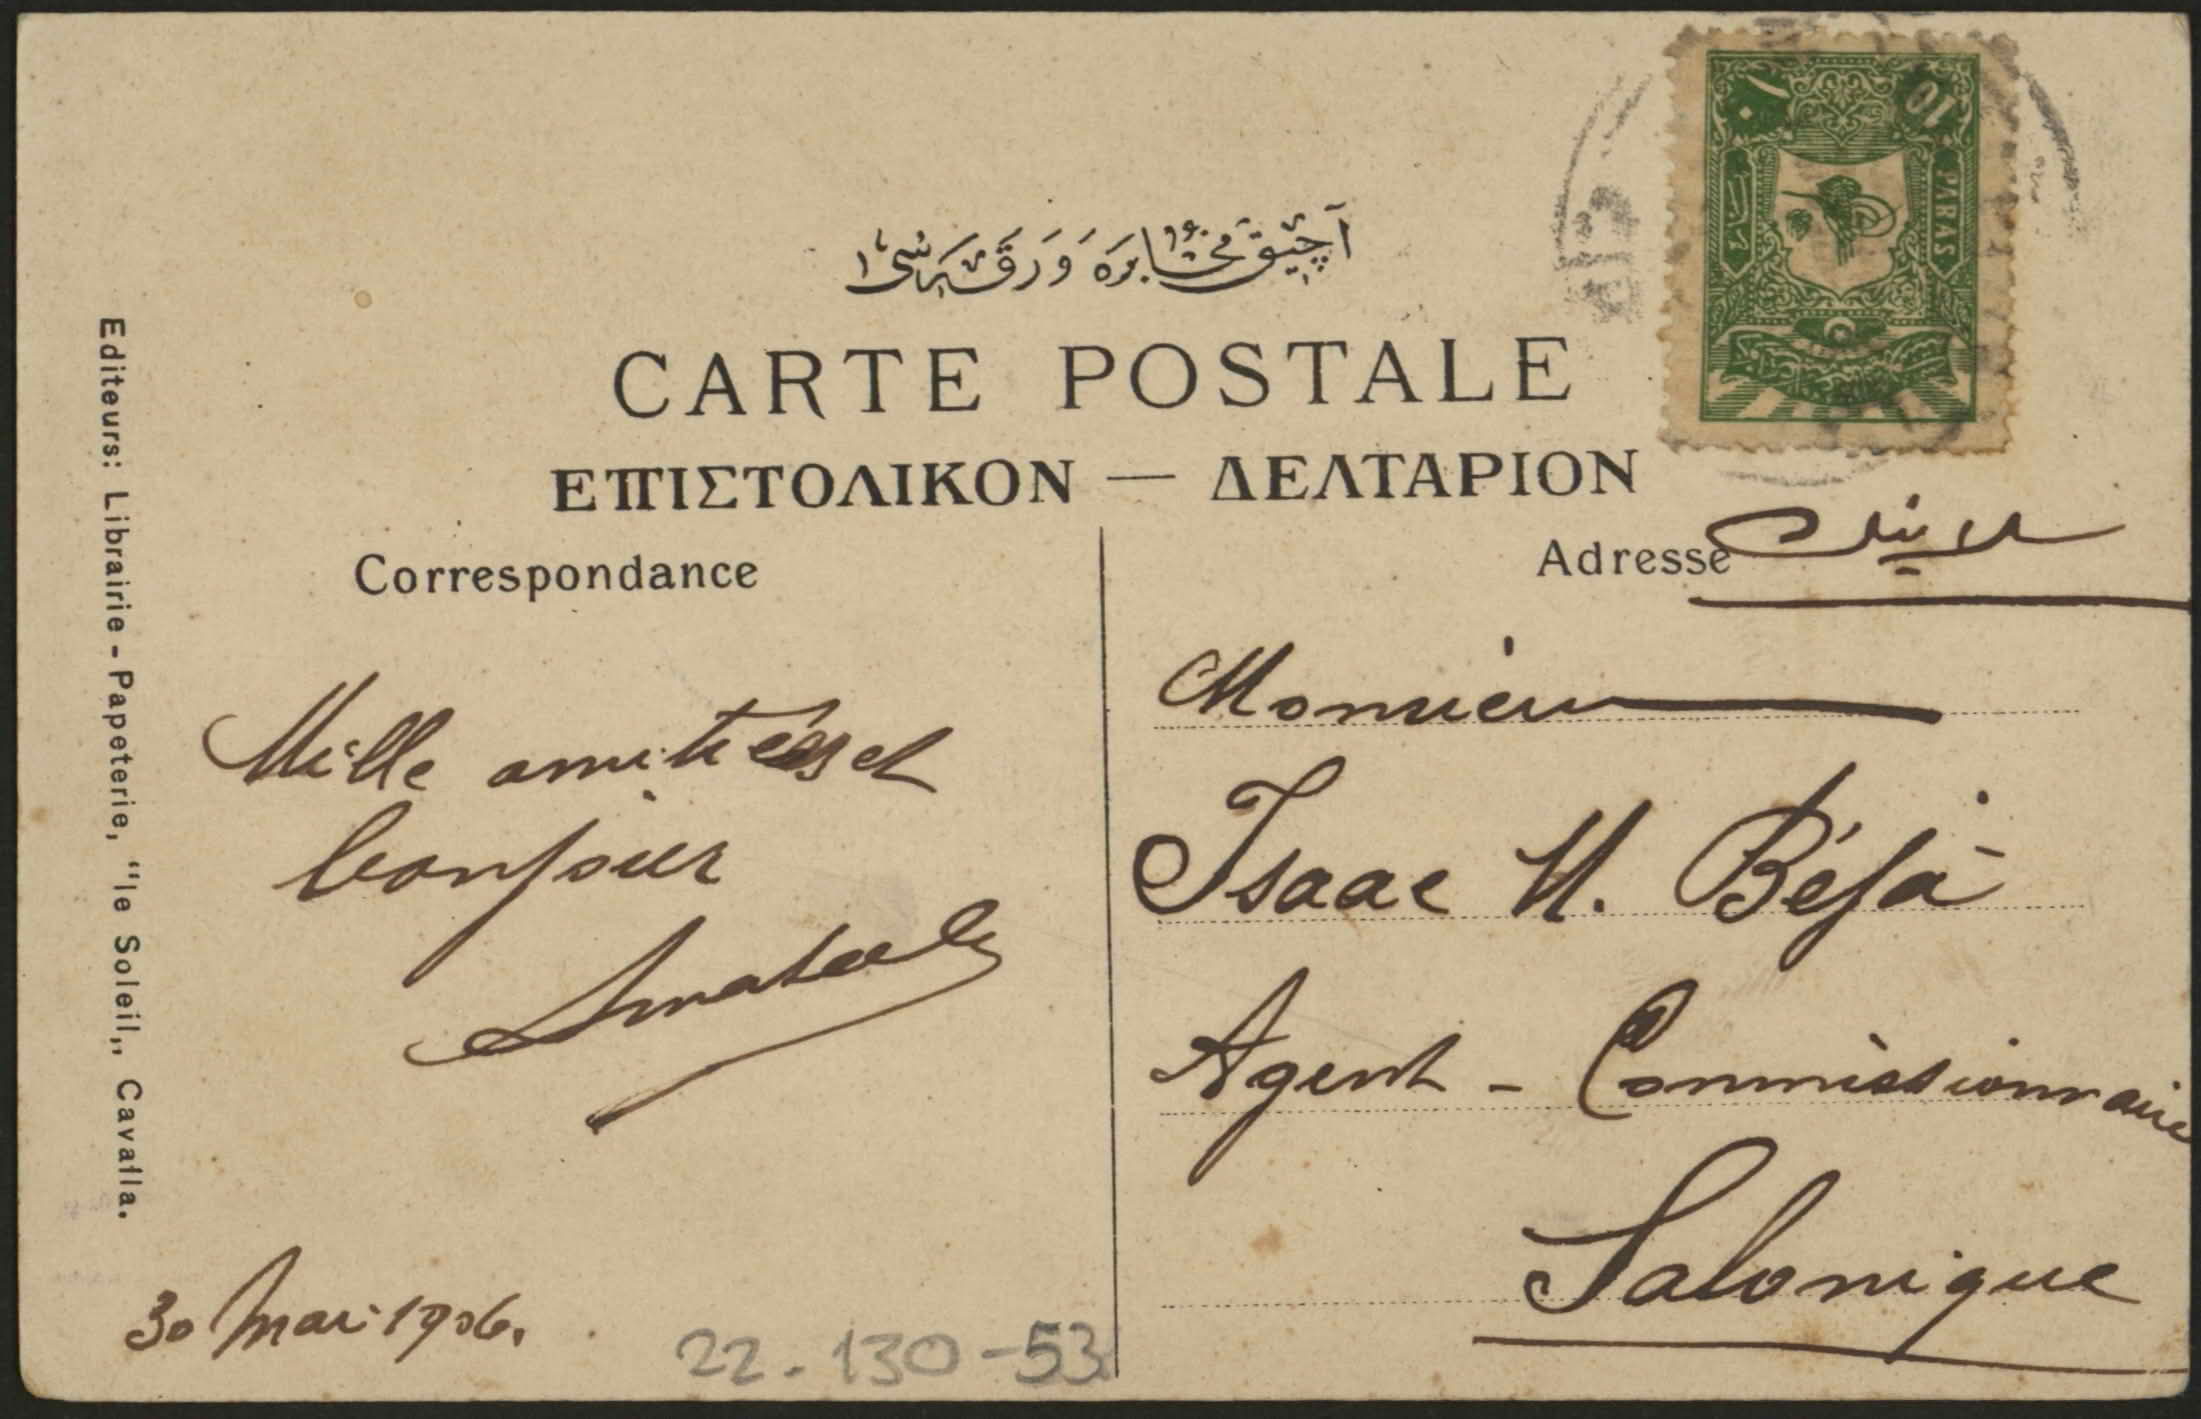 آچیق مخابره ورقه‌سی
CARTE POSTALE
ΕΠΙΣΤΟΛΙΚΟΝ — ΔΕΛΤΑΡΙΟΝ
Correspondance
Adresse
سلانیك
Mille amitiés et
bonjour
30 Mai 1906.
22.130-53
Monsieur
Isaac H. Béja
Agent - Commissionnaire
Salonique
Editeurs: Librairie - Papeterie, "le Soleil„, Cavalla.
١٠
10
PARAS